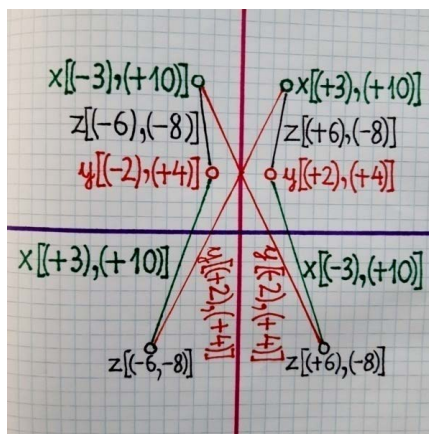 x[(-3),(+10)]
x[(+3),(+10)]
z[(-6),(-8)]
z[(+6),(-8)]
y[(-2),(+4)]
y[(+2),(+4)]
x[(+3),(+10)]
y[(+2),(+4)]
y[(-2),(+4)]
x[(-3),(+10)]
z[(-6,-8)]
z[(+6),(-8)]